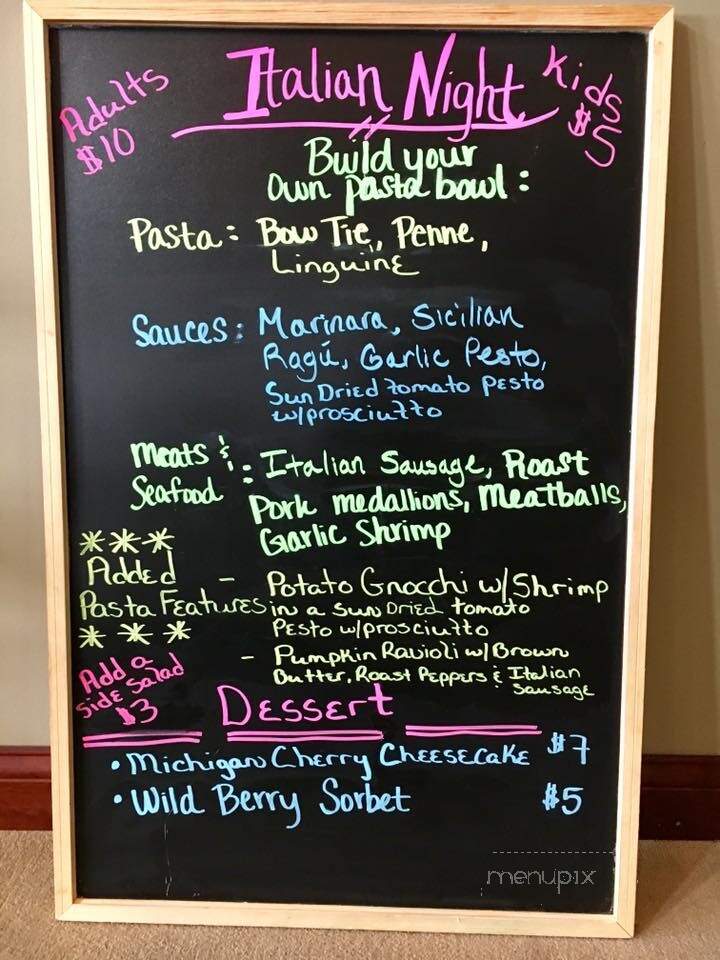 Adults
$10
Italian Night
Kids
$5
Build your
Own pasta bowl :
Pasta : Bow Tie, Penne,
Linguine
Sauces : Marinara, Sicilian
Ragú, Garlic Pesto,
Sun Dried tomato Pesto
w/prosciutto
Meats &
Seafood : Italian Sausage, Roast
Pork medallions, Meatballs,
Garlic Shrimp
***
Added
Pasta Features
***
- Potato Gnocchi w/Shrimp
in a sun Dried tomato
Pesto w/prosciutto
- Pumpkin Ravioli w/Brown
Butter, Roast Peppers & Italian
Sausage
Add a
side salad
$3
Dessert
• Michigan Cherry Cheesecake $7
• Wild Berry Sorbet $5
menupix